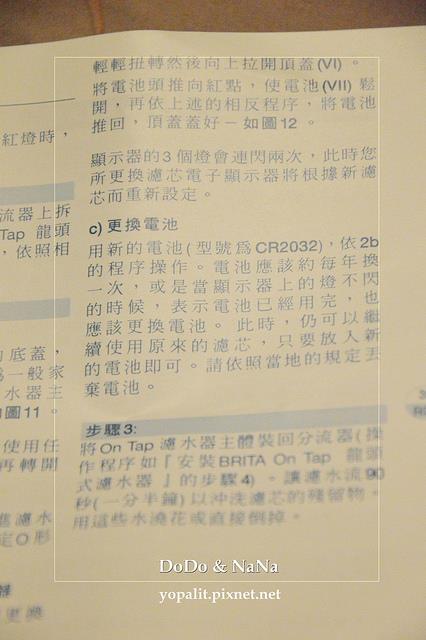 紅燈時，
流器上拆
Tap 龍頭
，依照相
底蓋，
一般家
水器主
圖11。
使用任
再轉開
進濾水
定O形
更換
輕輕扭轉然後向上拉開頂蓋(VI)。
將電池頭推向紅點，使電池(VII) 鬆
開，再依上述的相反程序，將電池
推回，頂蓋蓋好－如圖12。
顯示器的3個燈會連閃兩次，此時您
所更換濾芯電子顯示器將根據新濾
芯而重新設定。
c) 更換電池
用新的電池(型號爲CR2032)，依2b
的程序操作。電池應該約每年換
一次，或是當顯示器上的燈不閃
的時候，表示電池已經用完，也
應該更換電池。此時，仍可以繼
續使用原來的濾芯，只要放入新
的電池即可。請依照當地的規定丟
棄電池。
步驟3:
將On Tap 濾水器主體裝回分流器(操
作程序如『安裝BRITA On Tap 龍頭
式濾水器』的步驟4)。讓濾水流90
秒(一分半鐘)以沖洗濾芯的殘留物。
用這些水澆花或直接倒掉。
DoDo & NaNa
yopalit.pixnet.net